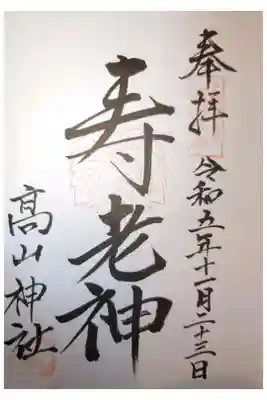 奉拝 令和五年十一月二十三日
寿老神
髙山神社